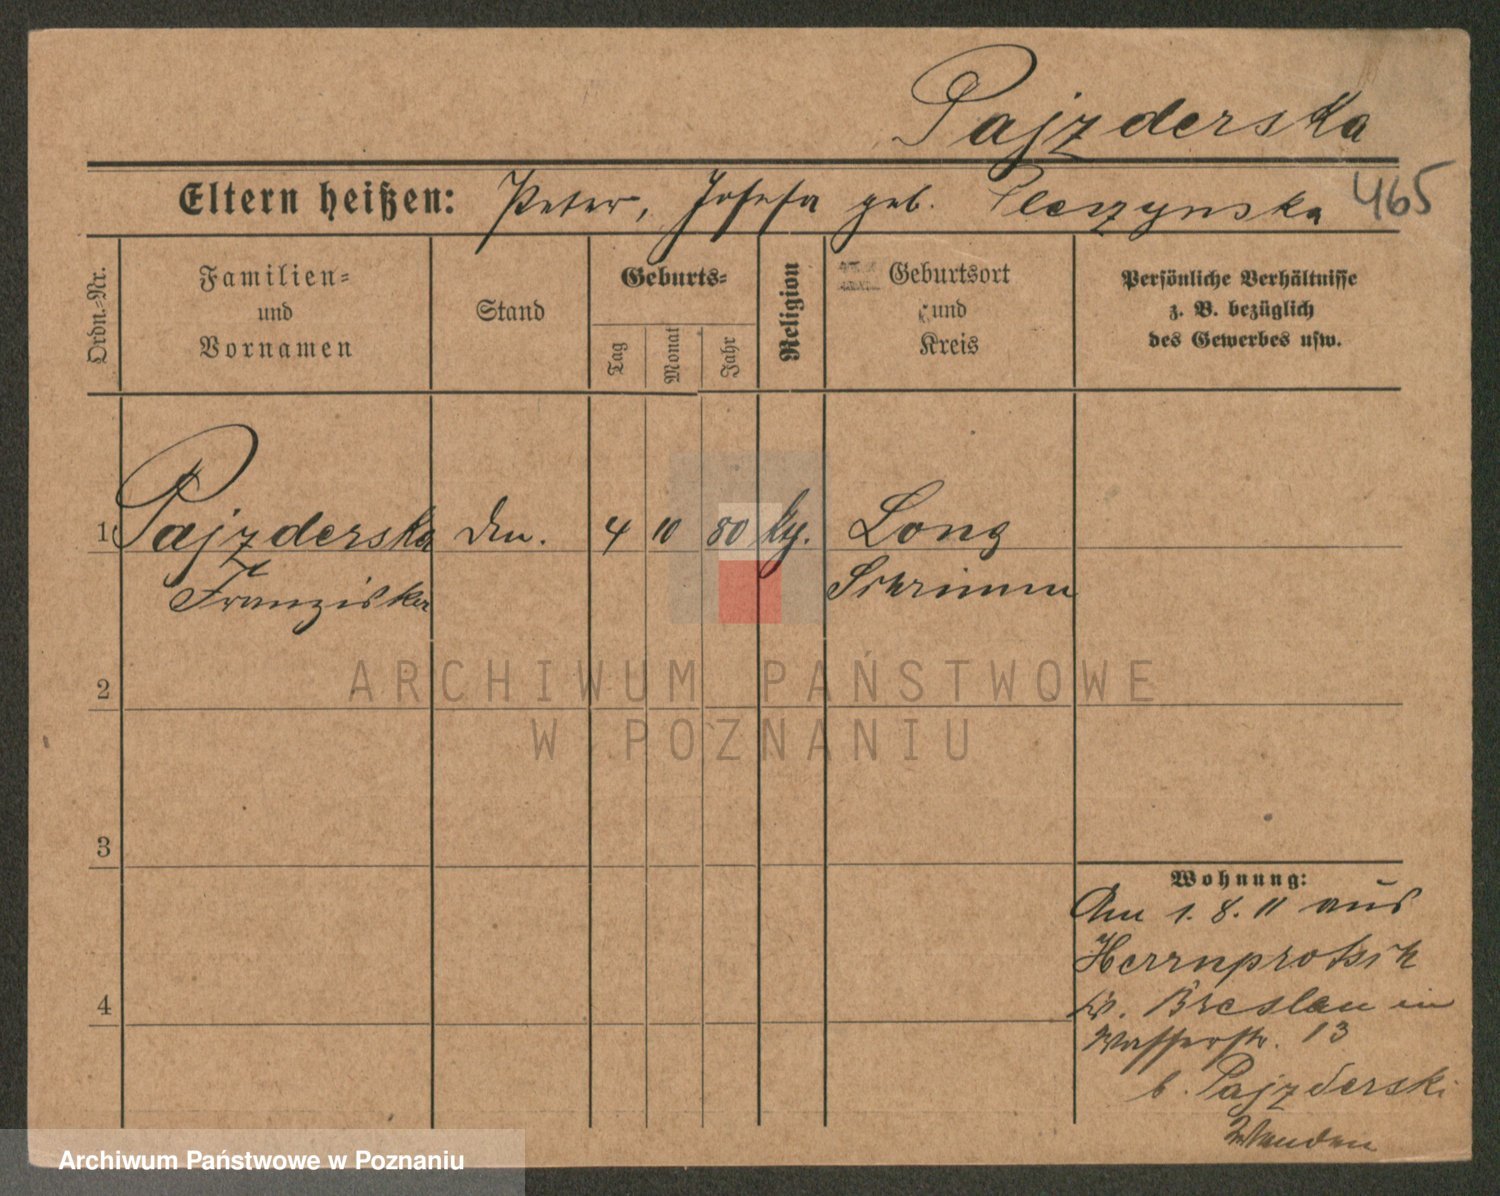 Pajzderska
Eltern heißen: Peter, Josefa geb. Pleszynska 465
Ordn.-Nr.
Familien-
und
Vornamen
Stand
Geburts-
Tag
Monat
Jahr
Religion
Geburtsort
und
Kreis
Persönliche Verhältnisse
z. B. bezüglich
des Gewerbes usw.
1 Pajzderska 4 10 80 Long
Franziska Schrimm
2
ARCHIWUM PAŃSTWOWE
W POZNANIU
3
Wohnung:
Am 1. 8. 11 aus
Herrnprotsch
Kr. Breslau in
Wasserstr. 13
b. Pajzderski
Wenden
4
Archiwum Państwowe w Poznaniu